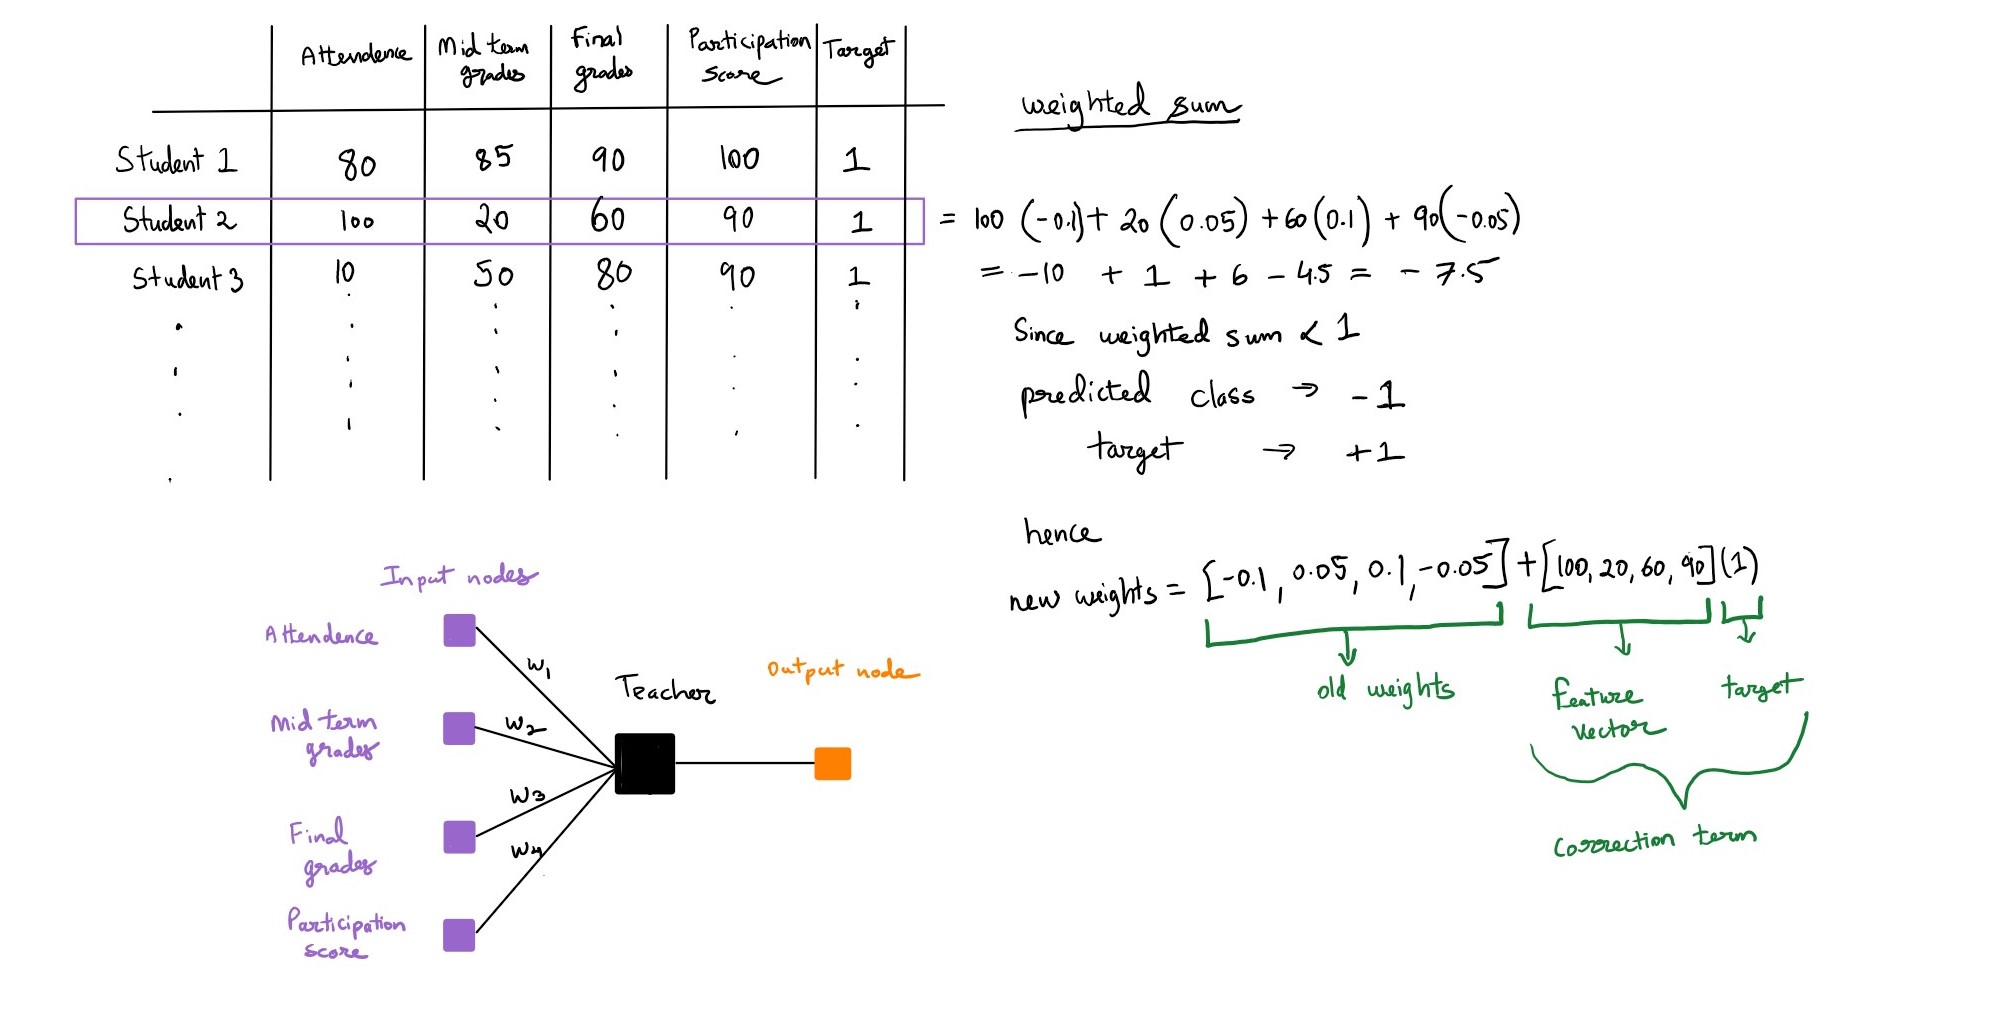 Attendence Mid term grades Final grades Participation score Target
Student 1 80 85 90 100 1
Student 2 100 20 60 90 1
Student 3 10 50 80 90 1
weighted sum
= 100 (-0.1) + 20 (0.05) + 60 (0.1) + 90 (-0.05)
= -10 + 1 + 6 - 4.5 = - 7.5
Since weighted sum < 1
predicted class → -1
target → +1
hence
new weights = [-0.1, 0.05, 0.1, -0.05] + [100, 20, 60, 90] (1)
old weights
feature vector
target
Correction term
Input nodes
Attendence
Mid term grades
Final grades
Participation score
w1
w2
w3
w4
Teacher
Output node